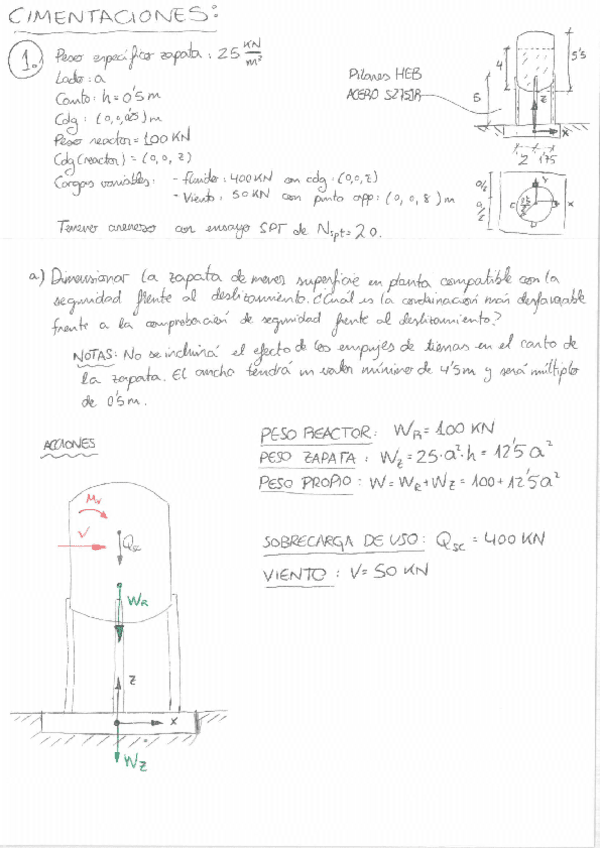 CIMENTACIONES:
1.
Peso específico zapata: 25 KN/m²
Lado: a
Canto: h = 0'5 m
Cdg: (0,0,0'25) m
Peso reactor = 100 KN
Cdg (reactor) = (0,0,z)
Cargas variables: - fluido: 400 KN con cdg: (0,0,z)
- Viento: 50 KN con punto app: (0,0,8) m
Terreno arenoso con ensayo SPT de Nspt = 20.
Pilares HEB
ACERO S275JR
4
5'5
5
z
x
2 1'75
a/2
a/2
Y
x
C
D
a) Dimensionar la zapata de menor superficie en planta compatible con la
seguridad frente al deslizamiento. ¿Cuál es la combinación más desfavorable
frente a la comprobación de seguridad frente al deslizamiento?
NOTAS: No se incluirá el efecto de los empujes de tierras en el canto de
la zapata. El ancho tendrá un valor mínimo de 4'5 m y será múltiplo
de 0'5 m.
ACCIONES
PESO REACTOR: WR = 100 KN
PESO ZAPATA: Wz = 25·a²·h = 12'5 a²
PESO PROPIO: W = WR + Wz = 100 + 12'5 a²
SOBRECARGA DE USO: Qsc = 400 KN
VIENTO: V = 50 KN
Mv
V
Qsc
WR
z
x
Wz